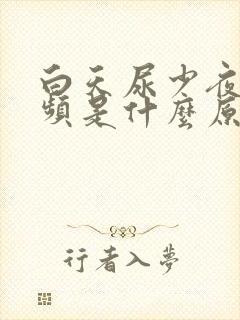 白天尿少夜
頻是什麼原
行者入夢